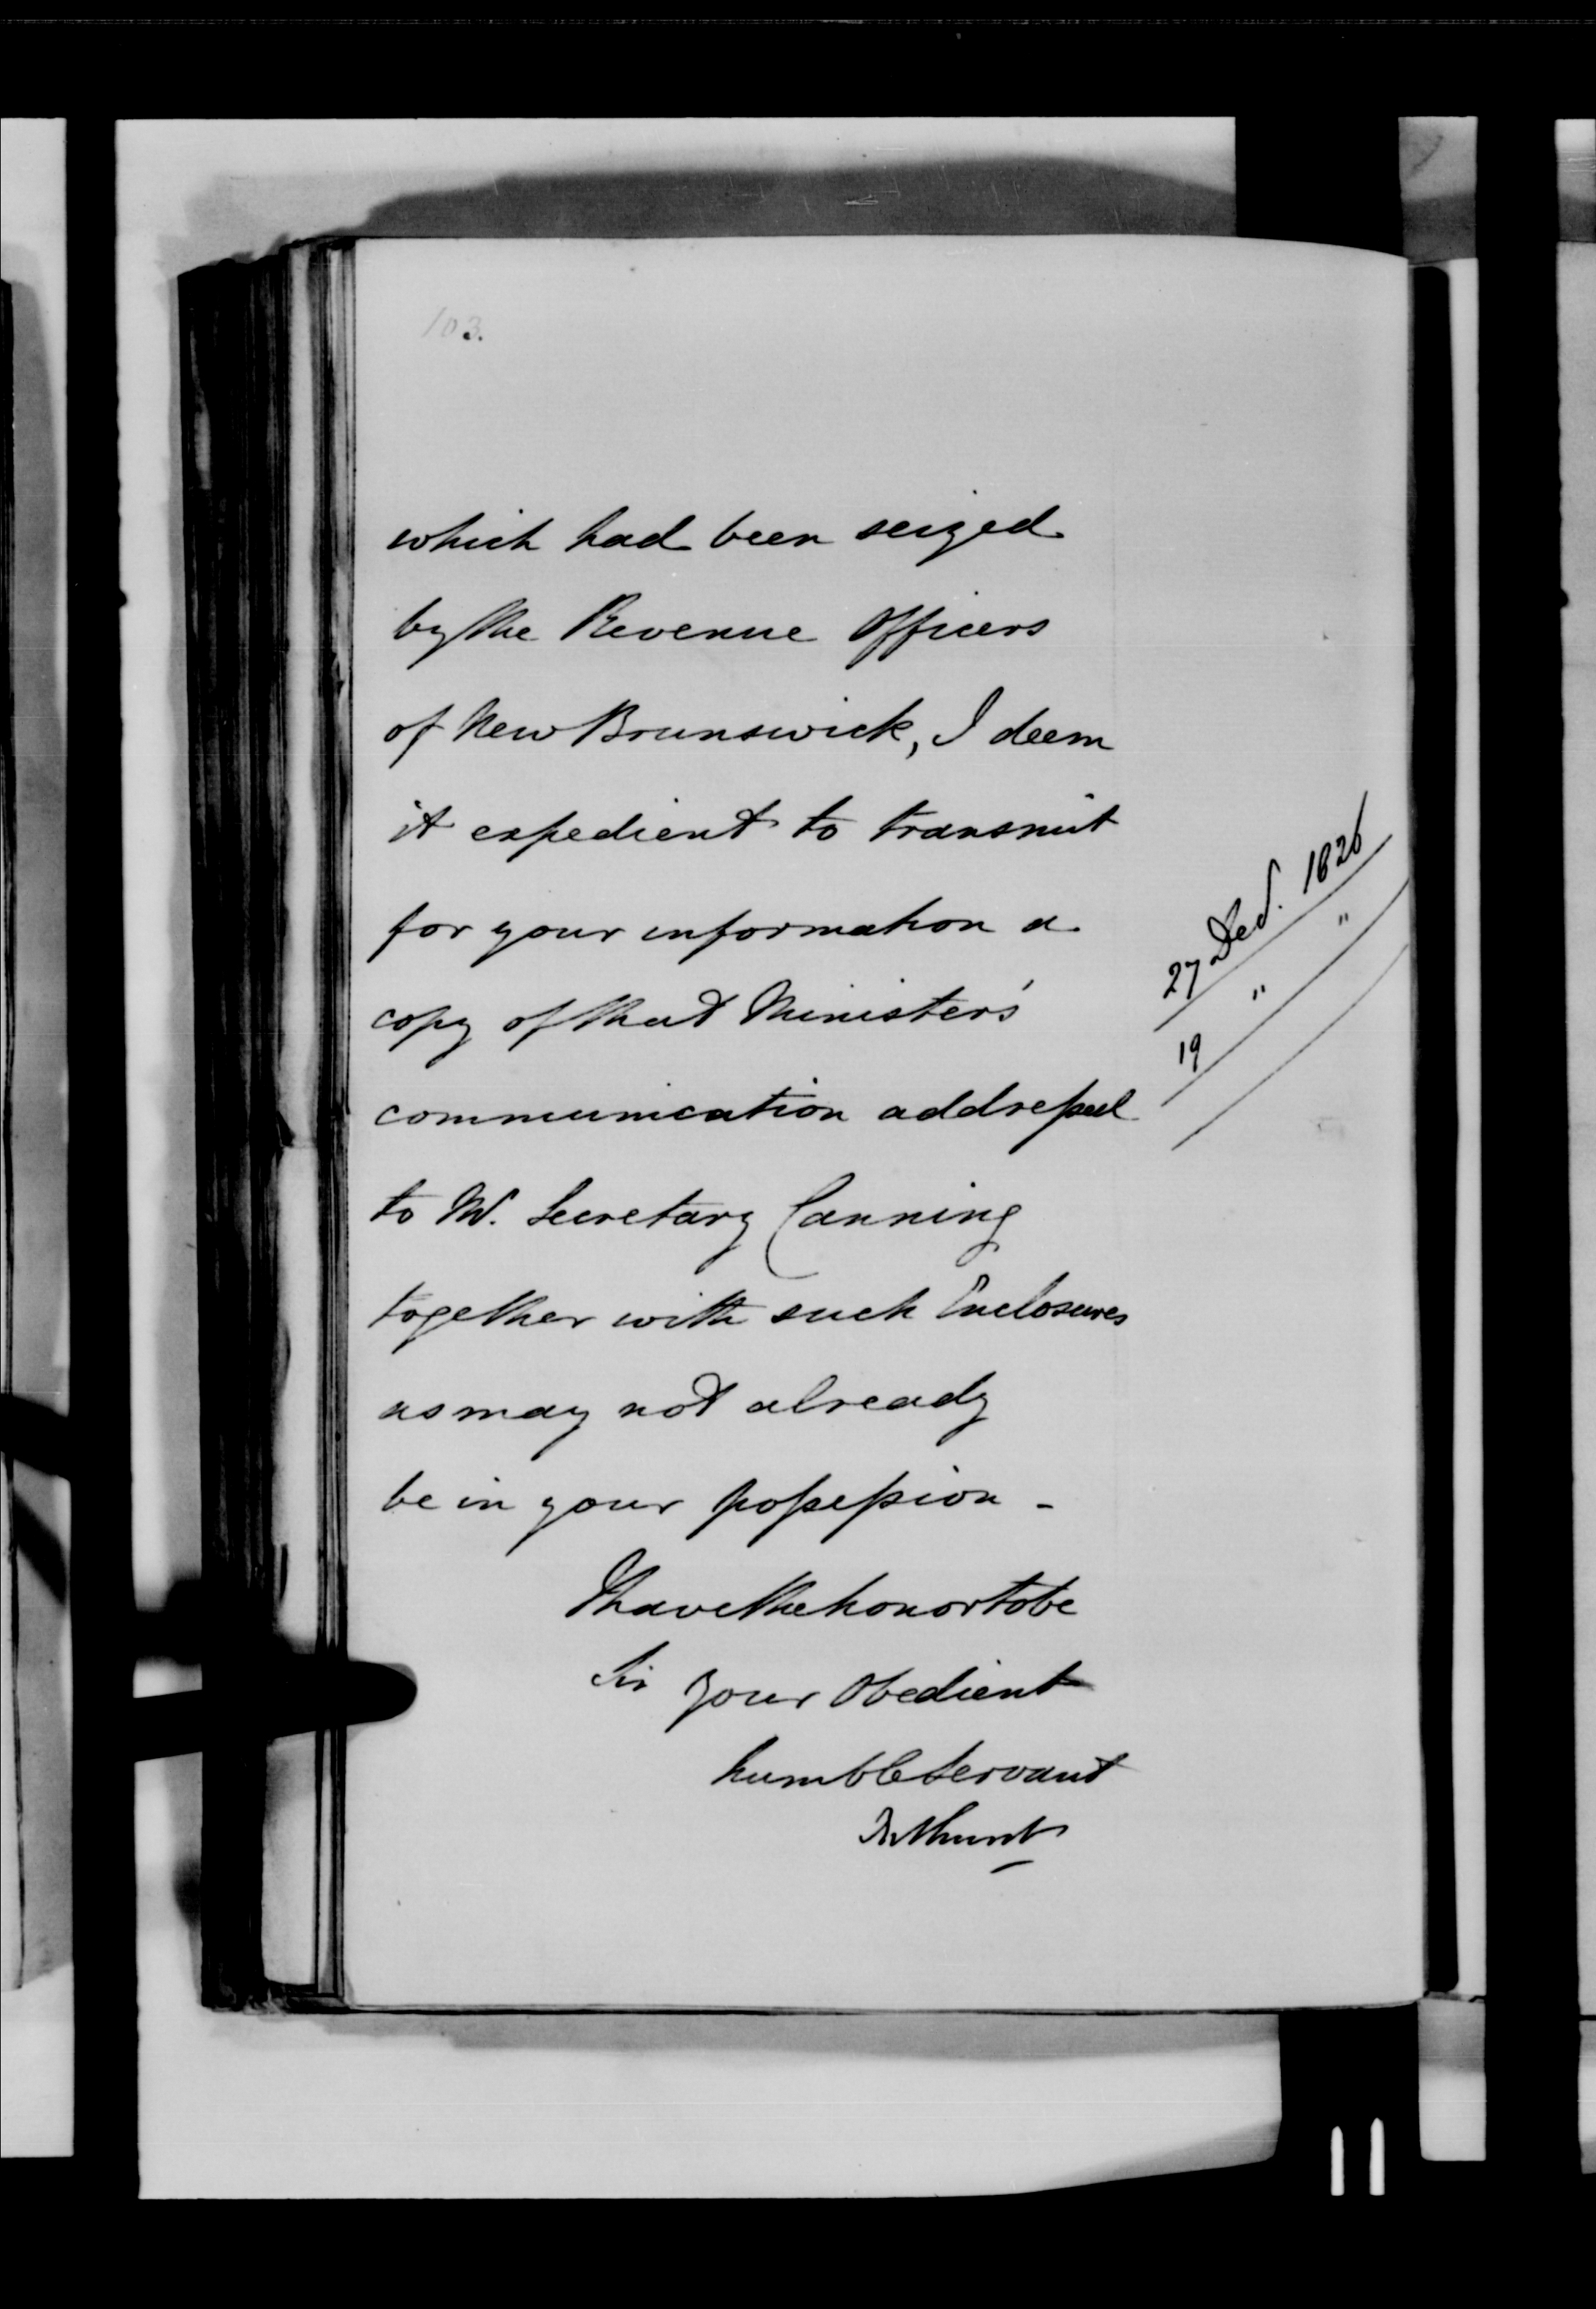 103.
which had been seized
by the Revenue Officers
of New Brunswick, I deem
it expedient to transmit
for your information a
copy of that Minister's
communication addressed
to Mr. Secretary Canning
together with such Enclosures
as may not already
be in your possession -
I have the honor to be
Sir your Obedient
humble Servant
Bathurst
27 Decr. 1826
19 " "